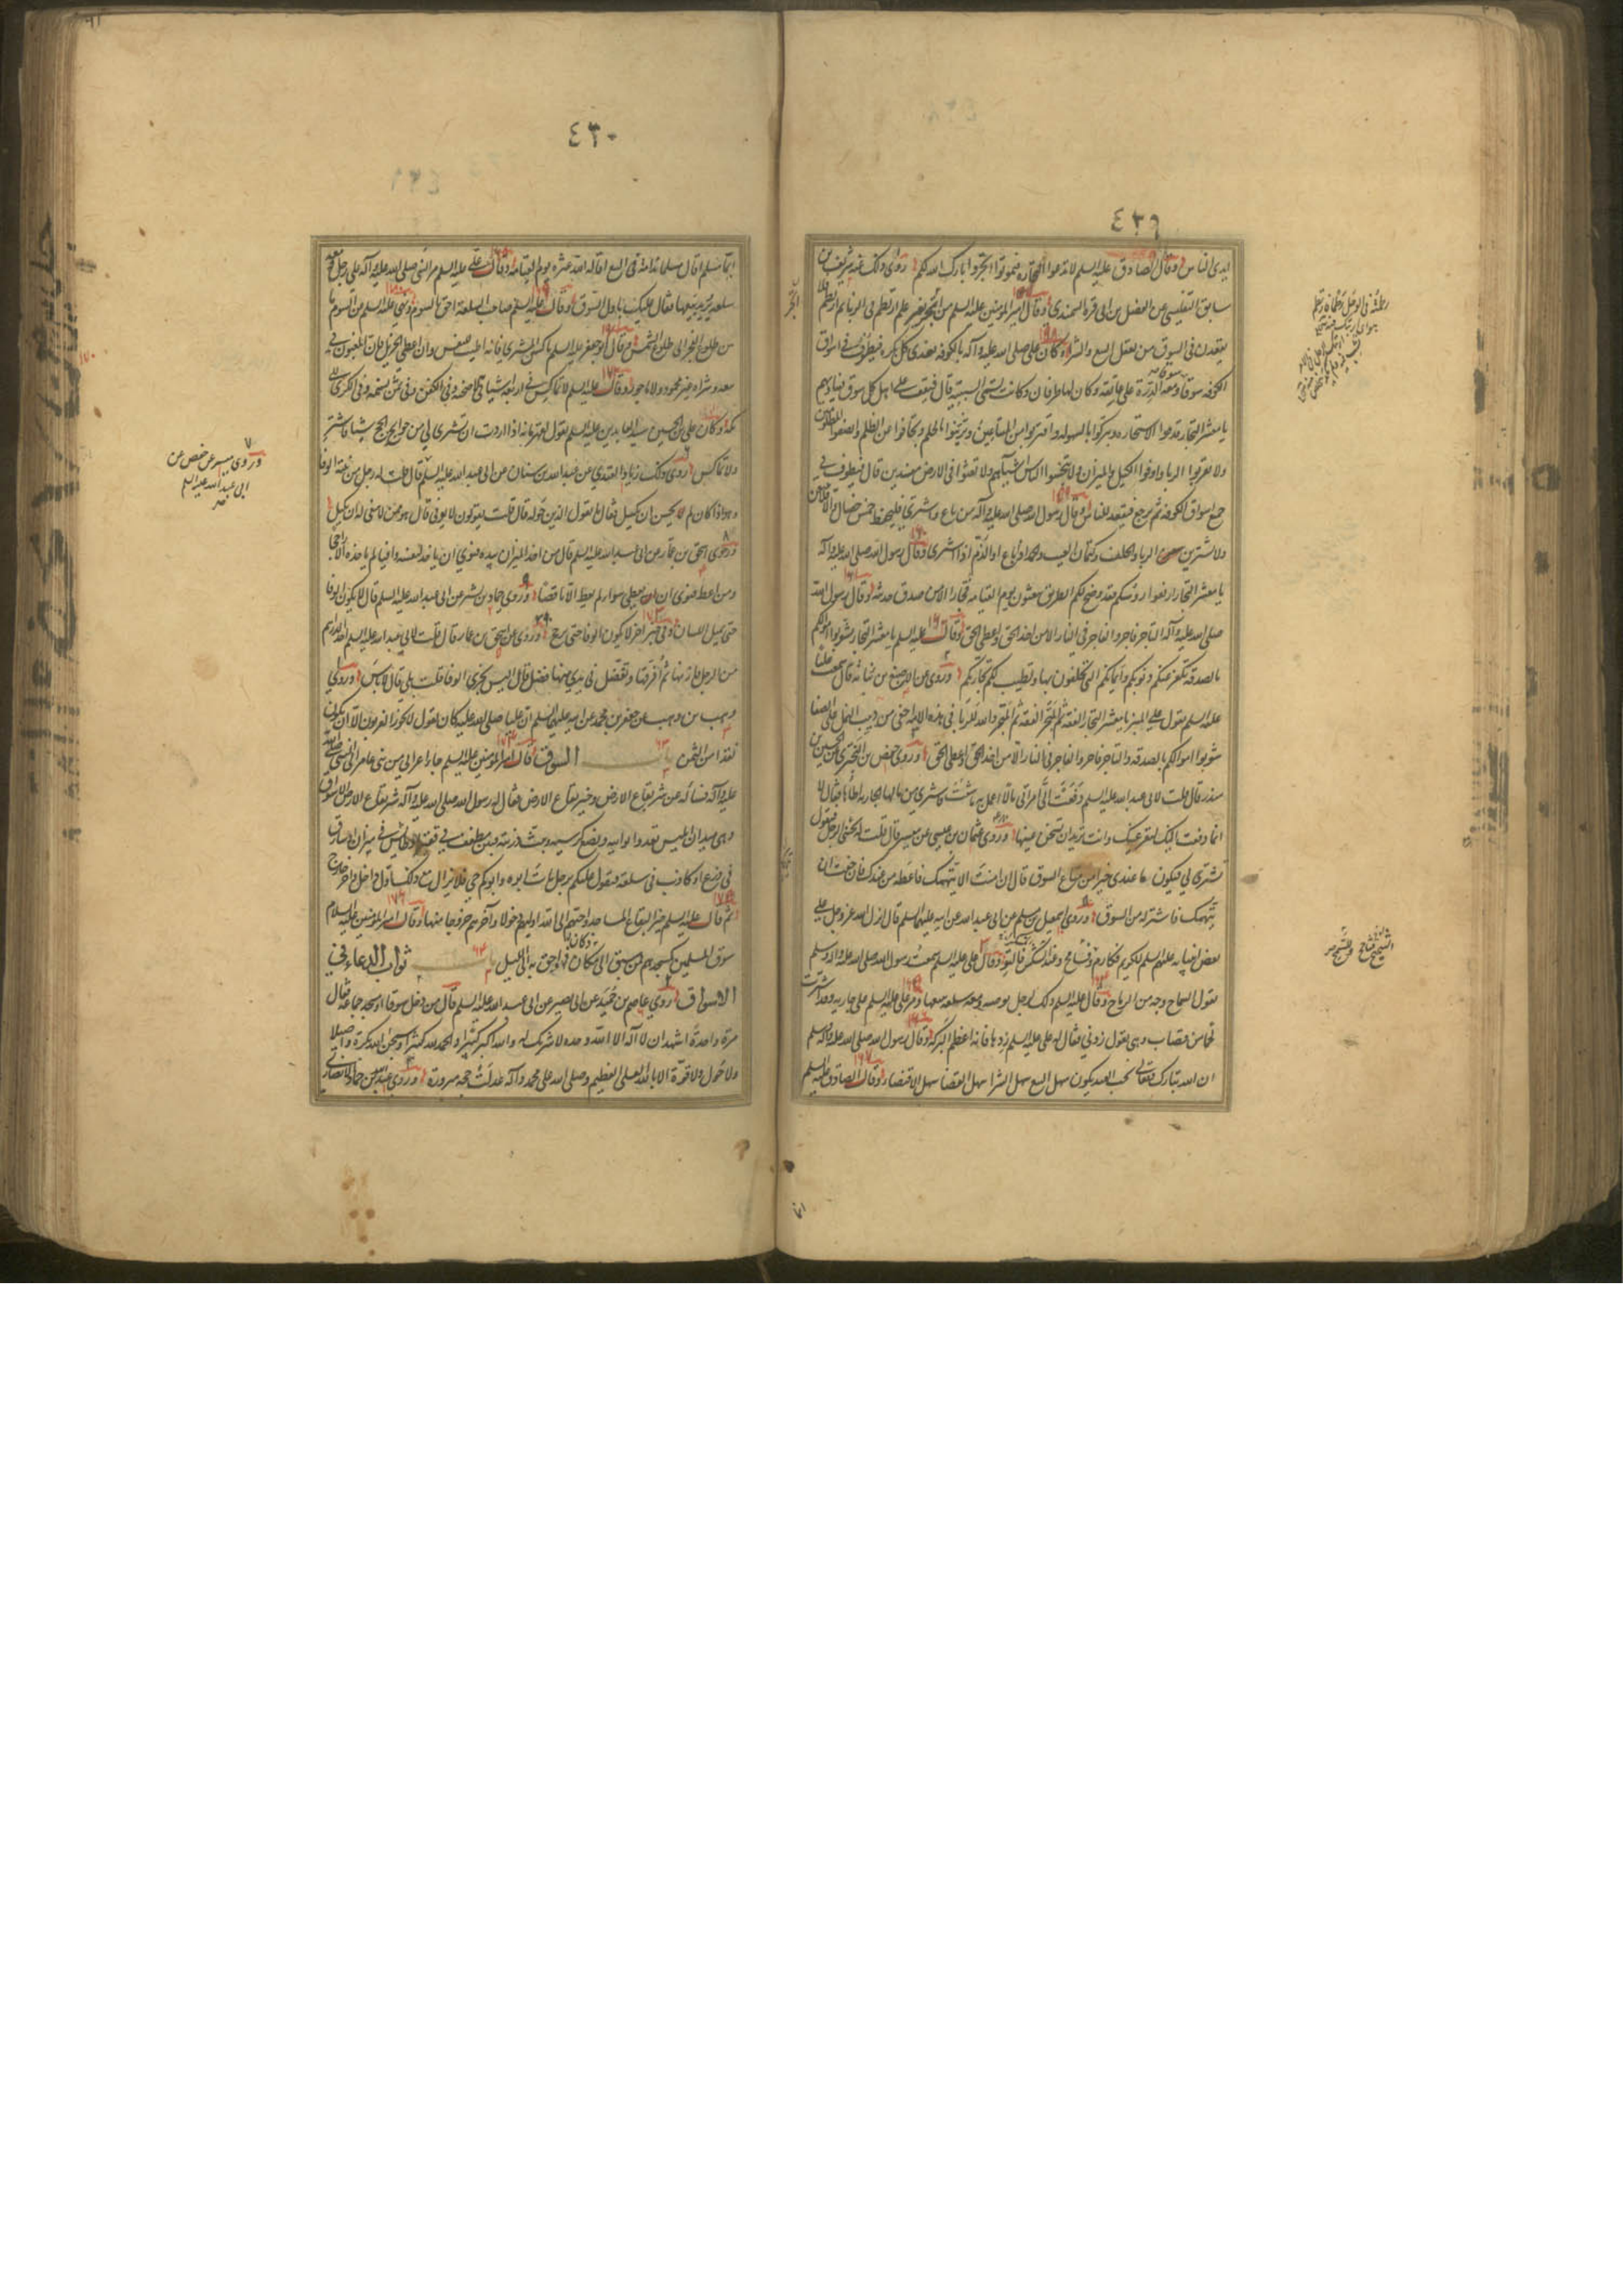 ٤٣٩
ايدى الناس وقال الصادق عليه السلم لا تدعوا التجارة فتهونوا اتجروا بارك الله لكم روى ذلك عنه شريف بن
سابق التفليسى عن الفضل بن ابى قرة السمندى وقال امير المؤمنين عليه السلم من اتجر بغير علم ارتطم فى الربا ثم ارتطم فلا
يقعدن فى السوق من يعقل البيع والشرا وكان على صلى الله عليه وآله بالكوفه يغتدى كل بكرة فيطوف فى اسواق
الكوفه سوقا سوقا ومعه الدرة على عاتقه وكان لها طرفان وكانت تسمى السبيبة قال فيقف على اهل كل سوق فيناديهم
يا معشر التجار قدموا الاستخاره وتبركوا بالسهوله واقتربوا من المبتاعين وتزينوا بالحلم وتجافوا عن الظلم وانصفوا المظلومين
ولا تقربوا الربا واوفوا الكيل والميزان ولا تبخسوا الناس اشياءهم ولا تعثوا فى الارض مفسدين قال فيطوف فى
جميع اسواق الكوفه ثم يرجع فيقعد للناس وقال رسول الله صلى الله عليه وآله من باع واشترى فليحفظ خمس خصال والا فلا يبيعن
ولا يشترين الربا والحلف وكتمان العيب والحمد اذا باع والذم اذا اشترى وقال رسول الله صلى الله عليه وآله
يا معشر التجار ارفعوا رؤسكم فقد وضح لكم الطريق تبعثون يوم القيامه فجارا الا من صدق حديثه وقال رسول الله
صلى الله عليه وآله التاجر فاجر والفاجر فى النار الا من اخذ الحق واعطى الحق وقال عليه السلم يا معشر التجار شوبوا اموالكم
بالصدقه تكفر عنكم ذنوبكم وايمانكم التى تحلفون بها وتطيب لكم تجارتكم وروى عن الاصبغ بن نباته قال سمعت عليا
عليه السلم يقول على المنبر يا معشر التجار الفقه ثم المتجر الفقه ثم المتجر والله للربا فى هذه الامة اخفى من دبيب النمل على الصفا
شوبوا اموالكم بالصدقه والتاجر فاجر والفاجر فى النار الا من اخذ الحق واعطى الحق وروى حفص بن البخترى عن الحسين بن
منذر قال قلت لابى عبد الله عليه السلم دفعت الى امراتى مالا اعمل به ما شئت فاشترى من مالها الجاريه اطأها فقال لا
انما دفعت اليك لتقر عينك وانت تريد ان تسخن عينها وروى عثمان بن عيسى عن ميسر قال قلت له يجيئنى الرجل فيقول
تشترى لى فيكون ما عندى خيرا من متاع السوق قال ان امنت الا يتهمك فاعطه من عندك فان خفت ان
يتهمك فاشتر له من السوق وروى اسمعيل بن مسلم عن ابى عبد الله عن ابيه عليهما السلم قال انزل الله عز وجل على
بعض انبيائه عليهم السلم للكريم فكارم وللسمح فسامح وعند الشكس فالتو وقال على عليه السلم سمعت رسول الله صلى الله عليه وآله وسلم
يقول السماح وجه من الرباح وقال عليه السلم ذلك لرجل يوصيه ومعه سلعه يبيعها ومر على عليه السلم على جاريه وقد اشترت
لحما من قصاب وهى تقول زدنى فقال له على عليه السلم زدها فانه اعظم للبركه وقال رسول الله صلى الله عليه وآله وسلم
ان الله تبارك وتعالى يحب العبد يكون سهل البيع سهل الشرا سهل القضا سهل الاقتضاء وقال الصادق عليه السلم
٤٣٠
ايما مسلم اقال مسلما ندامة فى البيع اقاله الله عثرته يوم القيامه وقال على عليه السلم مر النبى صلى الله عليه وآله على رجل ومعه
سلعه يريد بيعها فقال عليك باول السوق وقال عليه السلم صاحب السلعه احق بالسوم ونهى عليه السلم عن السوم ما
بين طلوع الفجر الى طلوع الشمس وقال ابو جعفر عليه السلم ماكس المشترى فانه اطيب للنفس وان اعطى الجزيل فان المغبون فى
بيعه وشرائه غير محمود ولا ماجور وقال عليه السلم لا تماكس فى اربعه اشيا فى الاضحيه وفى الكفن وفى ثمن نسمه وفى الكرى الى
مكه وكان على بن الحسين سيد العابدين عليه السلم يقول لقهرمانه اذا اردت ان تشترى لى من حوايج الحج شيا فاشتر
ولا تماكس روى ذلك زياد القندى عن عبد الله بن سنان عن ابى عبد الله عليه السلم قال قلت له رجل من نيته الوفا
وهو اذا كان لم يحسن ان يكيل فقال ما يقول الذين حوله قال قلت يقولون لا يوفى قال هو ممن لا ينبغى له ان يكيل
وروى اسحق بن عمار عن ابى عبد الله عليه السلم قال من اخذ الميزان بيده فنوى ان ياخذ لنفسه وافيا لم ياخذه الا راجحا
ومن اعطى فنوى ان يعطى سوا لم يعط الا ناقصا وروى حماد بن بشير عن ابى عبد الله عليه السلم قال لا يكون الوفا
حتى يميل اللسان وفى خبر اخر لا يكون الوفا حتى يرجح وروى عن اسحق بن عمار قال قلت لابى عبد الله عليه السلم اخذ الدراهم
من الرجل فازنها ثم افرقها وتفضل فى يدى منها فضل قال اليس تحرى الوفا قلت بلى قال لا باس وروى
وهب بن وهب عن جعفر بن محمد عن ابيه عليهما السلم ان عليا صلى الله عليه كان يقول لا يجوز العربون الا ان يكون
نقدا من الثمن باب السوق قال امير المؤمنين عليه السلم جاء اعرابى من بنى عامر الى النبى صلى الله
عليه وآله فسأله عن شر بقاع الارض وخير بقاع الارض فقال له رسول الله صلى الله عليه وآله شر بقاع الارض الاسواق
وهى ميدان ابليس يغدو برايته ويضع كرسيه ويبث ذريته فبين مطفف فى قفيز او طائش فى ميزان او سارق
فى ذرع او كاذب فى سلعه فيقول عليكم برجل مات ابوه وابوكم حى فلا يزال مع ذلك اول داخل واخر خارج
ثم قال عليه السلم خير البقاع المساجد واحبهم الى الله اولهم دخولا وآخرهم خروجا منها وقال امير المؤمنين عليه السلام
سوق المسلمين كمسجدهم فمن سبق الى مكان فهو احق به الى الليل باب ثواب الدعاء فى
الاسواق روى عاصم بن حميد عن ابى بصير عن ابى عبد الله عليه السلم قال من دخل سوقا او مسجد جماعه فقال
مرة واحدة اشهد ان لا اله الا الله وحده لا شريك له والله اكبر كبيرا والحمد لله كثيرا وسبحن الله بكرة واصيلا
ولا حول ولا قوة الا بالله العلى العظيم وصلى الله على محمد وآله عدلت حجه مبرورة وروى عبد الله بن حماد الانصارى
٧
وروى ميسر عن حفص عن
ابى عبد الله عليه السلم